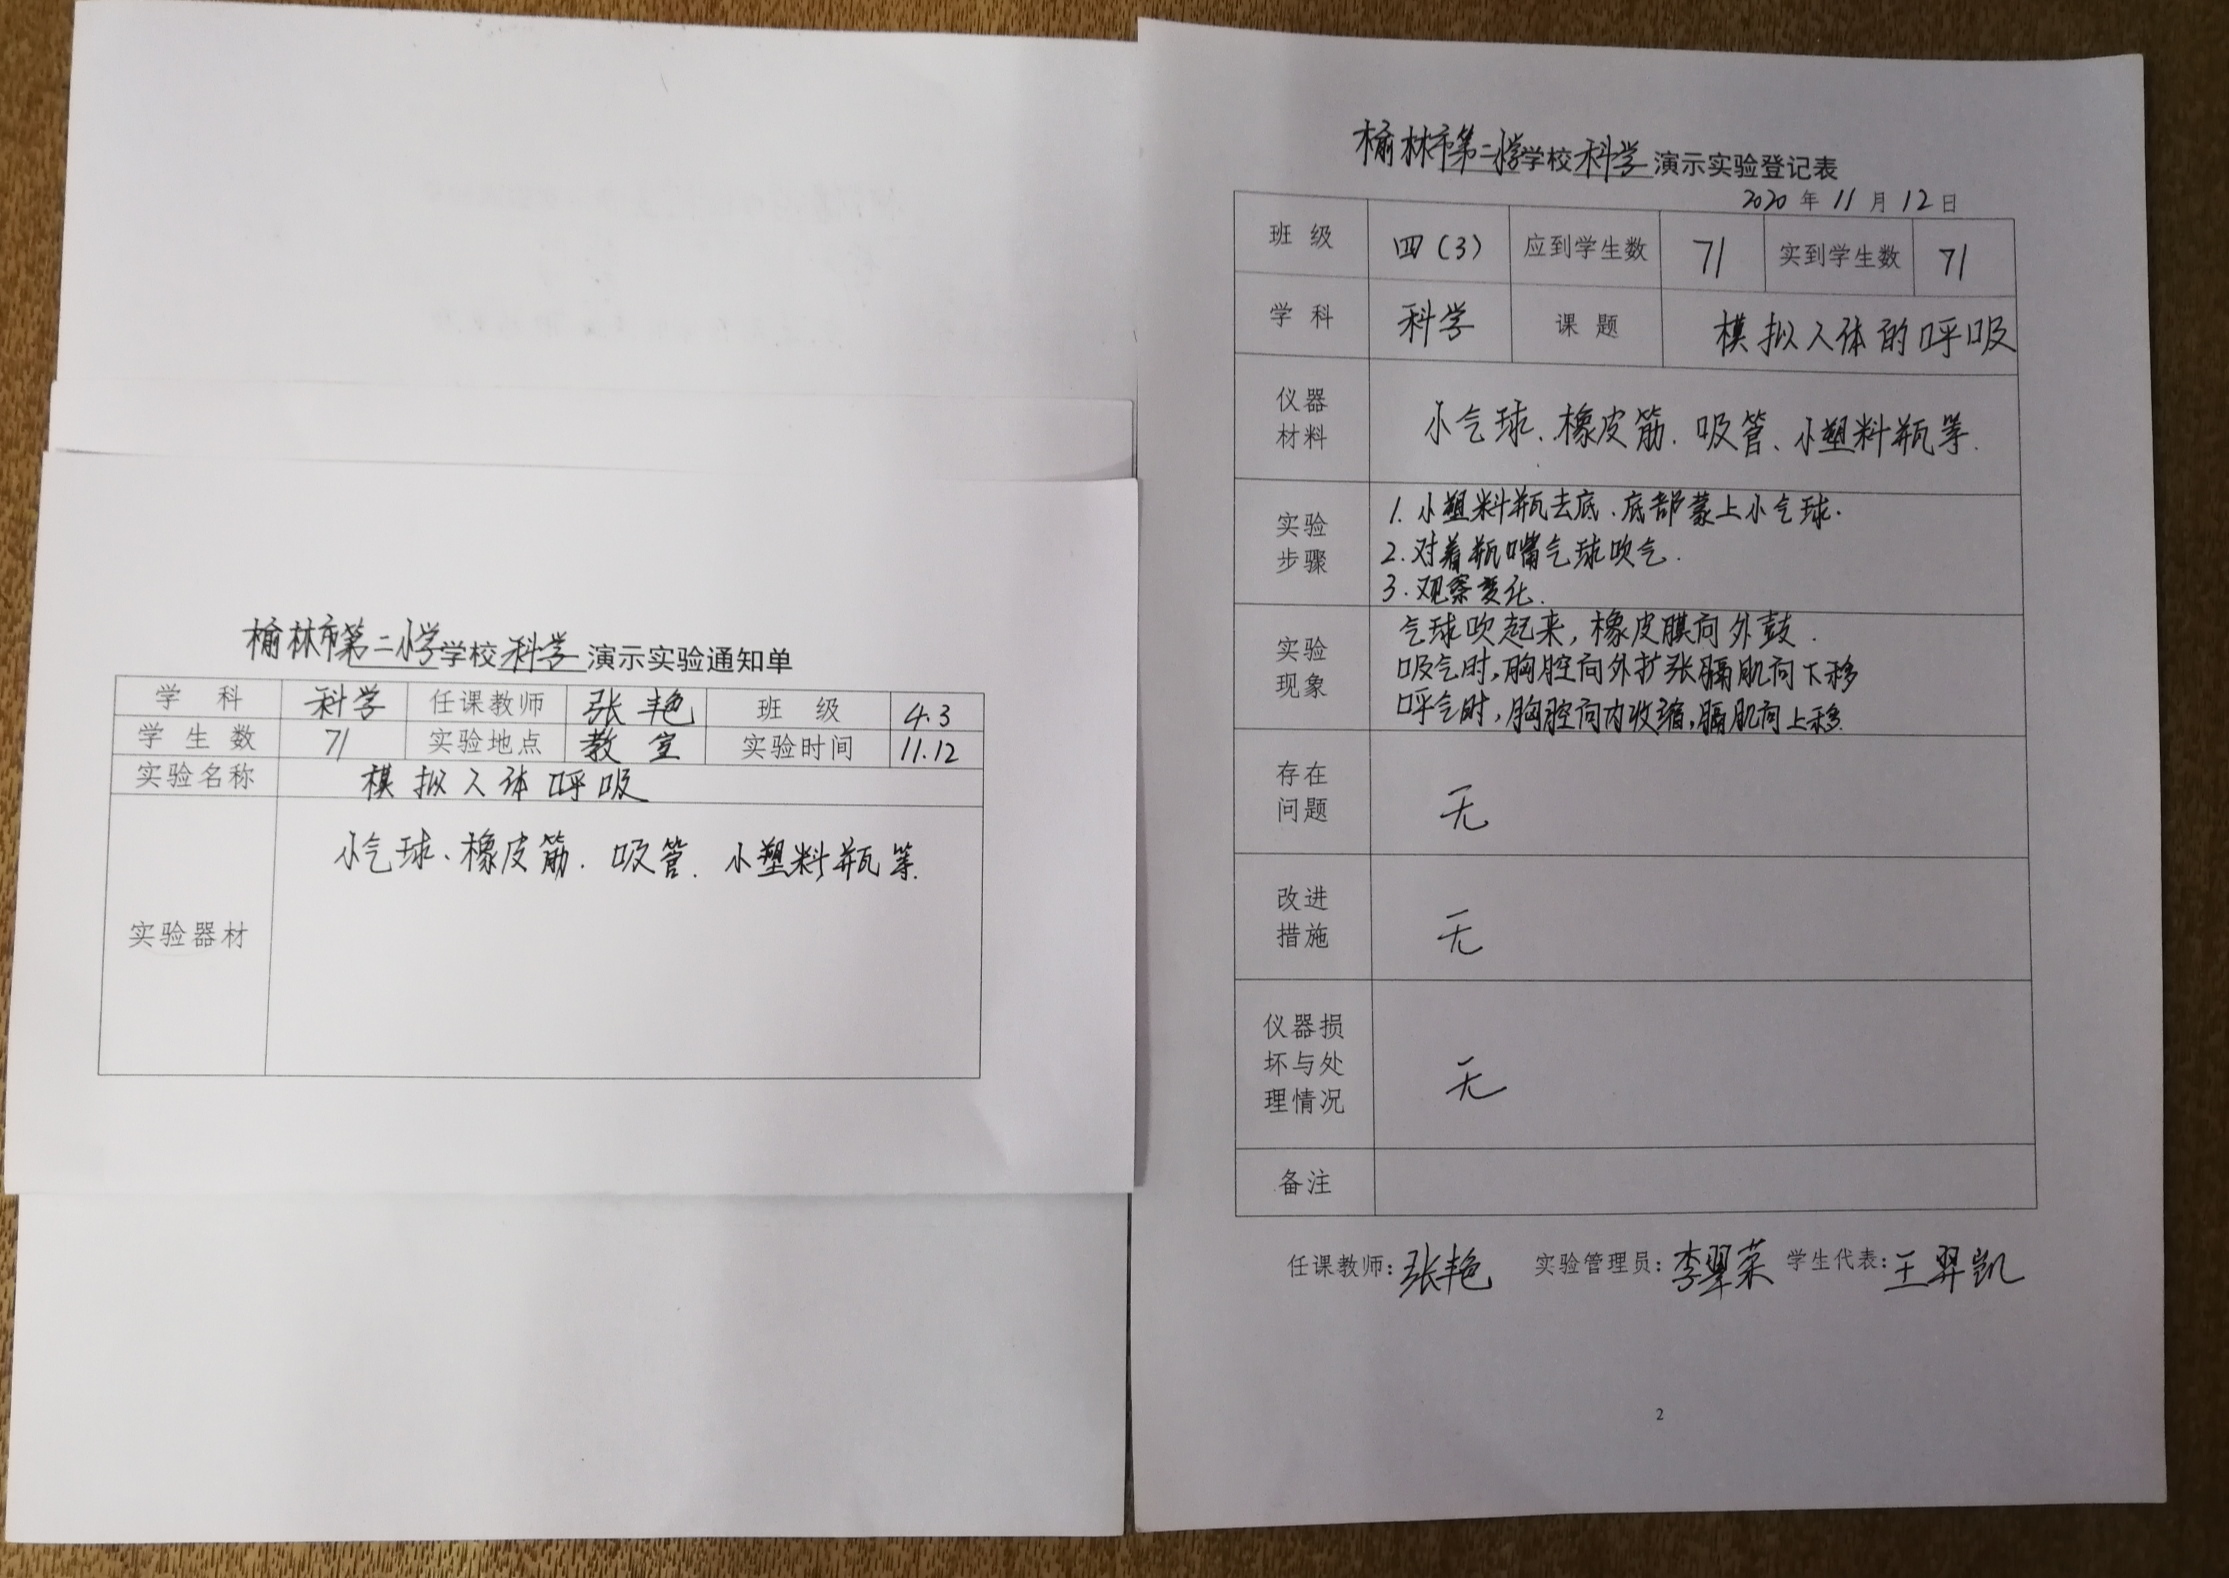 榆林市第二小学学校科学演示实验通知单
学 科 科学 任课教师 张艳 班 级 4.3
学 生 数 71 实验地点 教室 实验时间 11.12
实验名称 模拟人体呼吸
实验器材 小气球、橡皮筋、吸管、小塑料瓶等.
榆林市第二小学学校科学演示实验登记表
2020 年 11 月 12 日
班 级 四(3) 应到学生数 71 实到学生数 71
学 科 科学 课 题 模拟人体的呼吸
仪器
材料
小气球、橡皮筋、吸管、小塑料瓶等.
实验
步骤
1. 小塑料瓶去底、底部蒙上小气球.
2. 对着瓶嘴气球吹气.
3. 观察变化.
实验
现象
气球吹起来,橡皮膜向外鼓.
吸气时,胸腔向外扩张膈肌向下移
呼气时,胸腔向内收缩,膈肌向上移.
存在
问题
无
改进
措施
无
仪器损
坏与处
理情况
无
备注
任课教师:张艳 实验管理员:李翠荣 学生代表:王羿凯
2